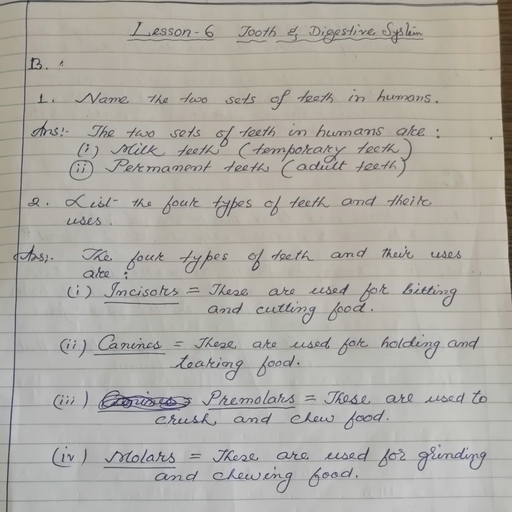 Lesson-6 Tooth & Digestive System
B.
1. Name the two sets of teeth in humans.
Ans:- The two sets of teeth in humans are :
(i) Milk teeth (temporary teeth)
(ii) Permanent teeth (adult teeth)
2. List the four types of teeth and their
uses.
Ans:- The four types of teeth and their uses
are :
(i) Incisors = These are used for bitting
and cutting food.
(ii) Canines = These are used for holding and
tearing food.
(iii) Premolars = These are used to
crush and chew food.
(iv) Molars = These are used for grinding
and chewing food.